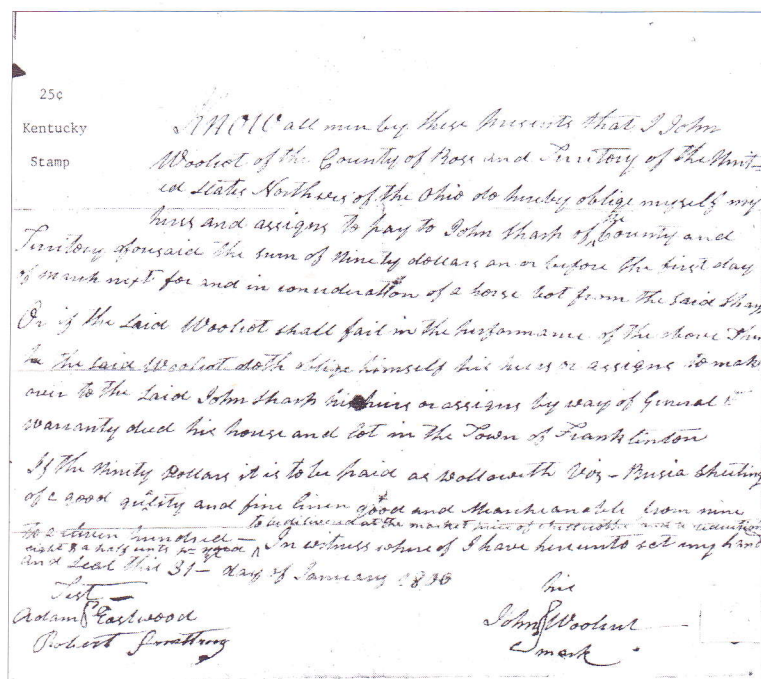 25¢
Kentucky
Stamp
KNOW all men by these presents that I John
Woolcot of the County of Ross and Territory of the Unit=
ed States Northwes of the Ohio do hereby oblige myself my
heirs and assigns to pay to John Sharp of County and
Territory aforesaid the sum of ninety dollars on or before the first day
of march next for and in consideration of a horse bot from the said Sharp
Or if the said Woolcot shall fail in the performance of the above Then
he the said Woolcot doth oblige himself his heirs or assigns to make
over to the said John Sharp his heirs or assigns by way of General
warranty deed his house and lot in the Town of Franklinton
If the ninety Dollars it is to be paid as Viz - Rusia Sheeting
of a good quality and fine linen good and Marchanable from nine
to eleven hundred - to be delivered at the market of
eight & a half In witness where of I have hereunto set my hand
and Seal this 31- day of January 1800
Test -
his
Adam Eastwood
John Woolcut
Robert Armstrong
mark